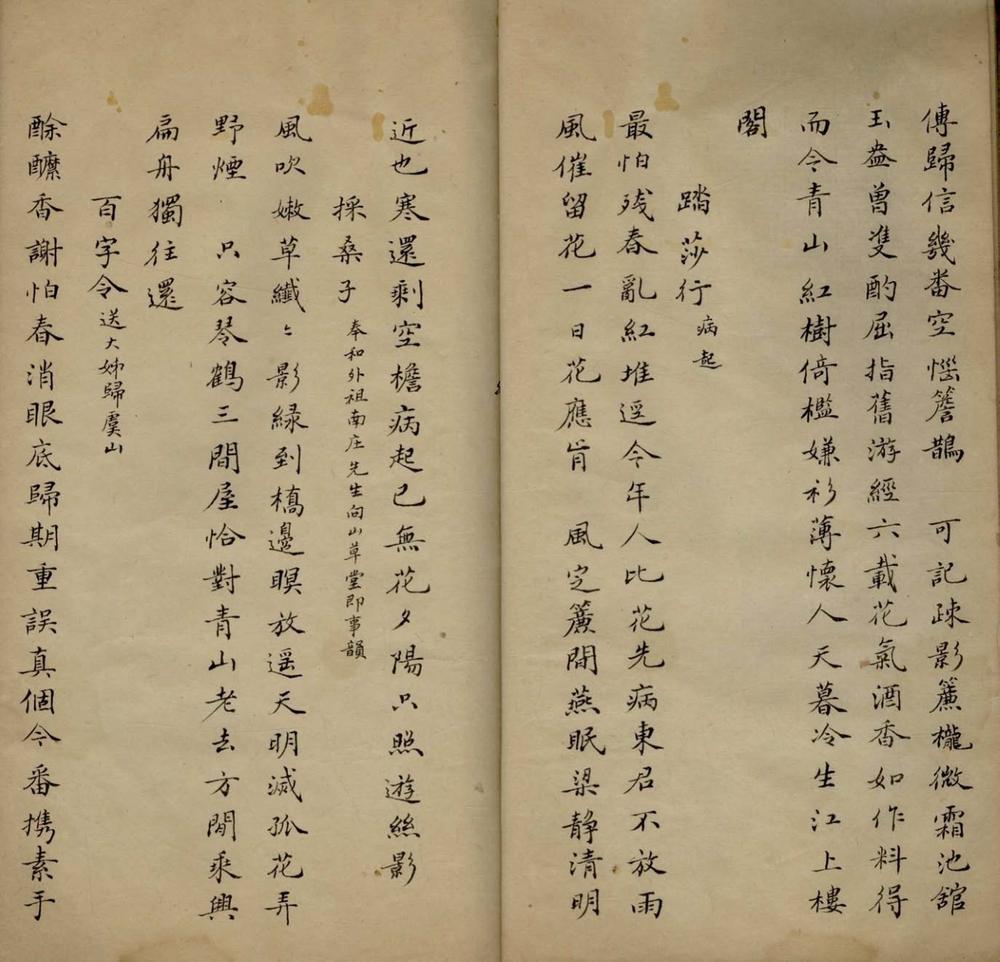 傳歸信幾番空惱簷鵲　可記疎影簾櫳微霜池舘
玉盎曽雙酌屈指舊游經六載花氣酒香如作料得
而今青山紅樹倚檻嫌衫薄懷人天暮冷生江上樓
閣
踏莎行 病起
最怕残春亂紅堆逕今年人比花先病東君不放雨
風催留花一日花應肎　風定簾間燕眠梁静清明
近也寒還剩空檐病起已無花夕陽只照遊絲影
採桑子 奉和外祖南庄先生向山草堂即事韻
風吹嫩草纖〻影緑到橋邊暝放遥天明滅孤花弄
野煙　只容琴鶴三間屋恰對青山老去方閒乘興
扁舟獨往還
百字令 送大姊歸虞山
酴醾香謝怕春消眼底歸期重誤真個今番擕素手